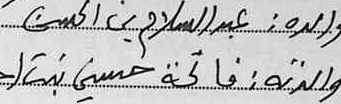 والده: عبد السلام بن الحسن
والدته: فاتحة حسيني بنت